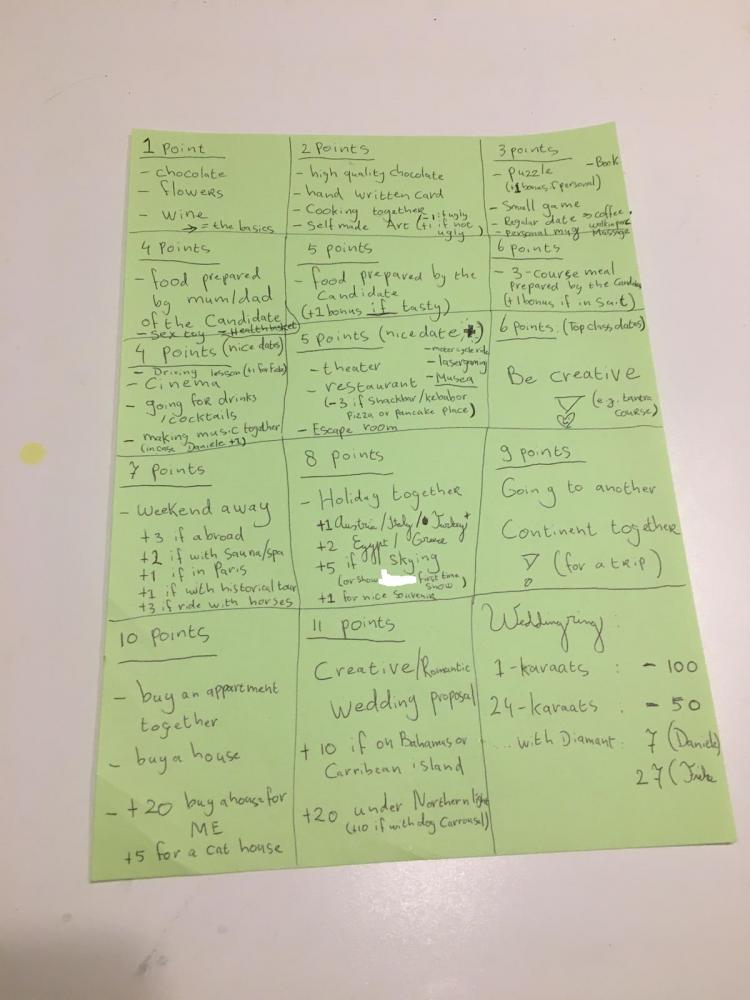 1 Point
- chocolate
- flowers
- wine
→ = the basics
2 Points
- high quality chocolate
- hand written card
- Cooking together
- Self made Art (-1 if ugly
(+1 if not
ugly)
3 points
- Book
- Puzzle
(+1 bonus if personal)
- Small game
- Regular date => coffee,
walk in park
- Personal mug
Massage
4 Points
- food prepared
by mum/dad
of the Candidate
- Sex toy = Healthbasket
5 points
- food prepared by the
Candidate
(+1 bonus if tasty)
6 points
- 3-course meal
prepared by the Candidate
(+1 bonus if in suit)
4 Points (nice dates)
- Driving lesson (+1 for
- Cinema
- going for drinks
/cocktails
- making music together
(in case Daniele +1)
5 points (nice date,
- theater
- restaurant
(-3 if snackbar/kebabor
pizza or pancake place)
- Escape room
- motorcycle ride
- lasergaming
- Musea
6 points (Top class dates)
Be creative
(e.g. tantra
course)
7 Points
- Weekend away
+3 if abroad
+2 if with Sauna/spa
+1 if in Paris
+1 if with historical tour
+3 if ride with horses
8 Points
- Holiday together
+1 Austria/Italy/Turkey
+2 Egypt/Greece
+5 if Skying
(or show first time
snow)
+1 for nice souvenir
9 points
Going to another
Continent together
(for a trip)
10 points
- buy an appartment
together
- buy a house
- +20 buy a house for
ME
+5 for a cat house
11 points
Creative/Romantic
Wedding proposal
+ 10 if on Bahamas or
Carribean island
+20 under Northernlight
(+10 if with dog Carrousel)
Weddingring:
1-karaats : - 100
24-karaats : - 50
... with Diamant: 7 (Daniele
27 (